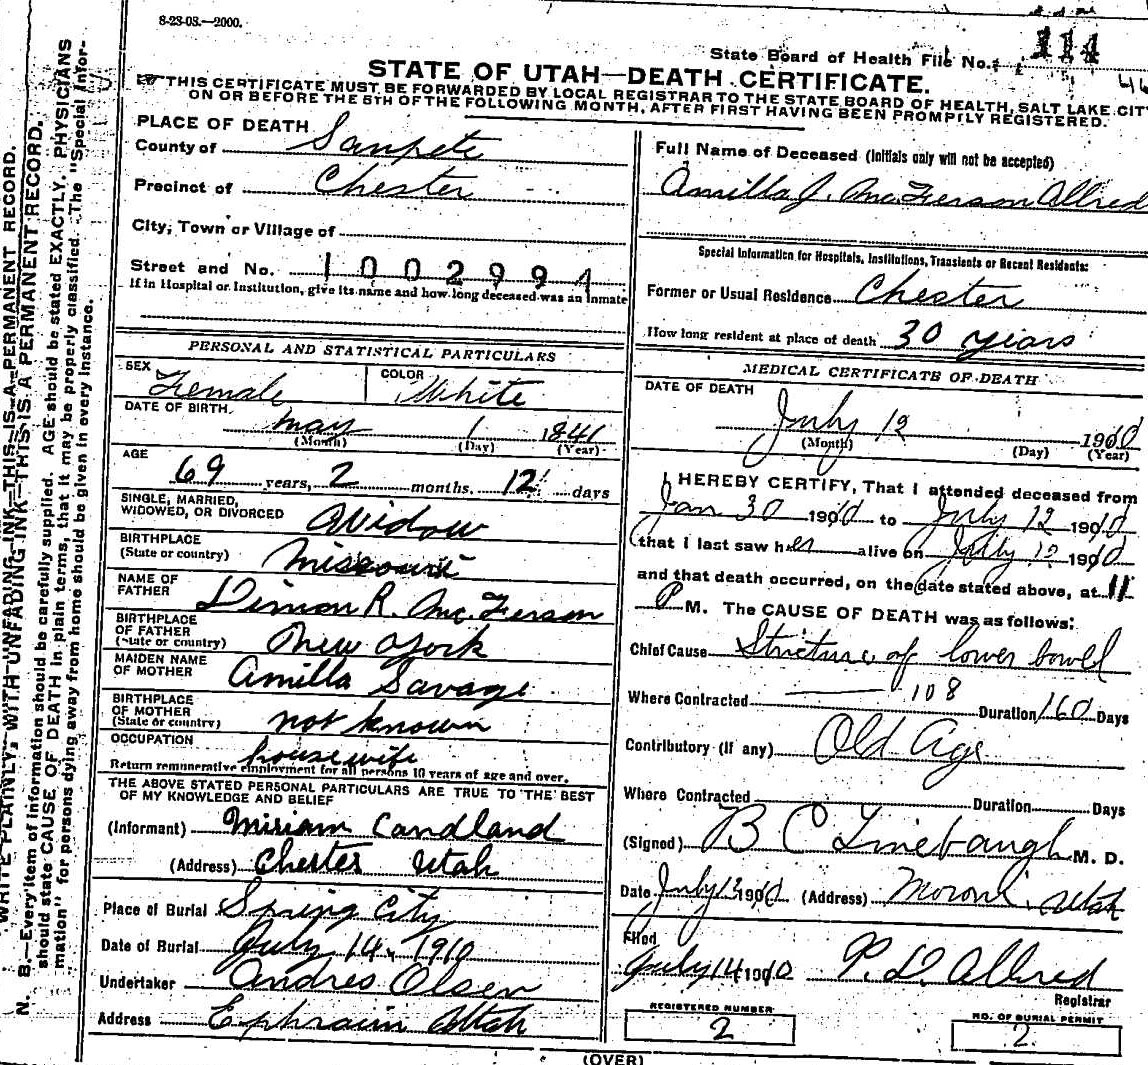 8-23-08.—2000.
State Board of Health File No. 114
STATE OF UTAH—DEATH CERTIFICATE.
THIS CERTIFICATE MUST BE FORWARDED BY LOCAL REGISTRAR TO THE STATE BOARD OF HEALTH, SALT LAKE CITY
ON OR BEFORE THE 5TH OF THE FOLLOWING MONTH, AFTER FIRST HAVING BEEN PROMPTLY REGISTERED.
PLACE OF DEATH
County of Sanpete
Precinct of Chester
City, Town or Village of
Street and No. 1002994
If in Hospital or Institution, give its name and how long deceased was an inmate
PERSONAL AND STATISTICAL PARTICULARS
SEX Female COLOR White
DATE OF BIRTH. May 1 1841
(Month) (Day) (Year)
AGE 69 years, 2 months, 12 days
SINGLE, MARRIED,
WIDOWED, OR DIVORCED Widow
BIRTHPLACE
(State or country) Missouri
NAME OF
FATHER Dimon R. McFerson
BIRTHPLACE
OF FATHER
(State or country) New York
MAIDEN NAME
OF MOTHER Amilla Savage
BIRTHPLACE
OF MOTHER
(State or country) not known
OCCUPATION housewife
Return remunerative employment for all persons 10 years of age and over.
THE ABOVE STATED PERSONAL PARTICULARS ARE TRUE TO THE BEST
OF MY KNOWLEDGE AND BELIEF
(Informant) Miriam Candland
(Address) Chester Utah
Place of Burial Spring City
Date of Burial July 14, 1910
Undertaker Andres Olsen
Address Ephraim Utah
Full Name of Deceased (Initials only will not be accepted)
Amilla J. McFerson Allred
Special Information for Hospitals, Institutions, Transients or Recent Residents:
Former or Usual Residence Chester
How long resident at place of death 30 years
MEDICAL CERTIFICATE OF DEATH
DATE OF DEATH
July 12 1910
(Month) (Day) (Year)
I HEREBY CERTIFY, That I attended deceased from
Jan 30 1910 to July 12 1910
that I last saw her alive on July 12 1910
and that death occurred, on the date stated above, at 11
P M. The CAUSE OF DEATH was as follows:
Chief Cause Stricture of lower bowel
Where Contracted 108 Duration 160 Days
Contributory (if any) Old Age
Where Contracted Duration Days
(Signed) B C Linebaugh M. D.
Date July 13 1910 (Address) Moroni, Utah
Filed
July 14 1910 P. D. Allred
Registrar
REGISTERED NUMBER
2
NO. OF BURIAL PERMIT
2
(OVER)
WRITE PLAINLY, WITH UNFADING INK—THIS IS A PERMANENT RECORD.
N. B.—Every item of information should be carefully supplied. AGE should be stated EXACTLY. PHYSICIANS
should state CAUSE OF DEATH in plain terms, that it may be properly classified. The "Special Infor-
mation" for persons dying away from home should be given in every instance.